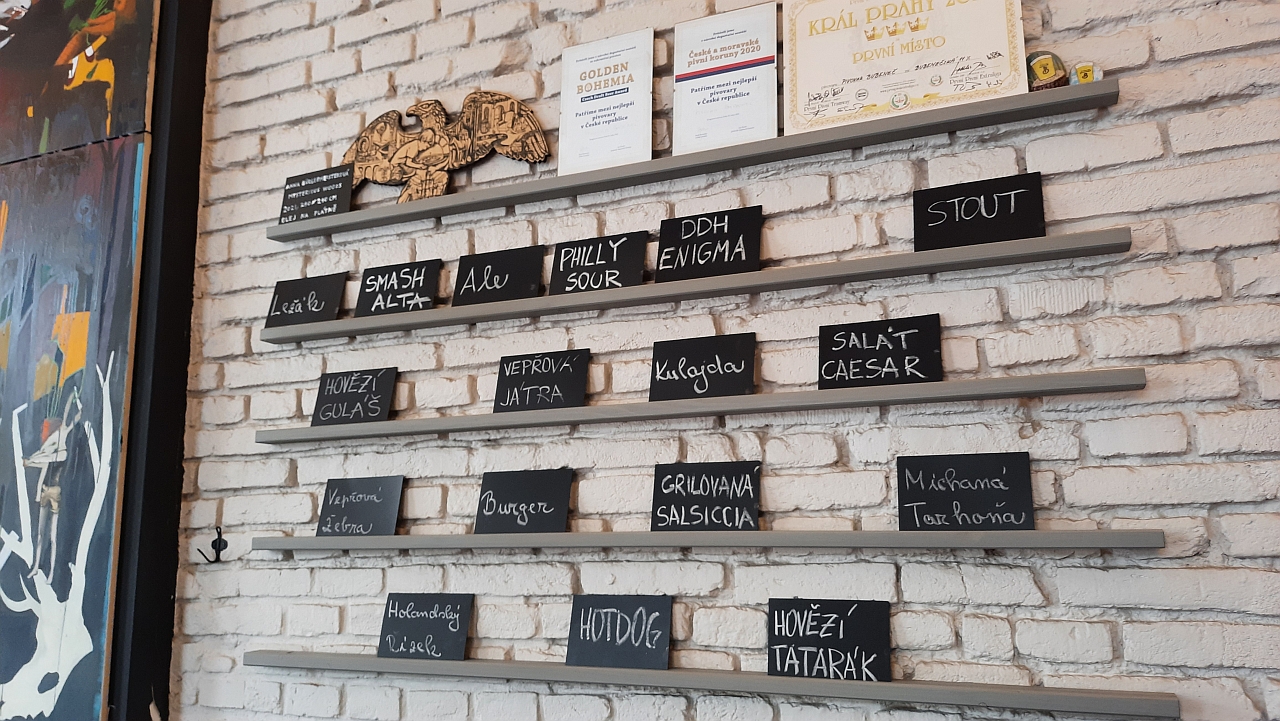 GOLDEN
BOHEMIA
Patříme mezi nejlepší
pivovary
v České republice
České a moravské
pivní koruny 2020
Patříme mezi nejlepší
pivovary
v České republice
KRÁL PRAHY
PRVNÍ MÍSTO
MYSTERIOUS WOODS
OLEJ NA PLÁTNĚ
Ležák
SMASH
ALTA
Ale
PHILLY
SOUR
DDH
ENIGMA
STOUT
HOVĚZÍ
GULÁŠ
VEPŘOVÁ
JÁTRA
Kulajda
SALÁT
CAESAR
Vepřová
Žebra
Burger
GRILOVANÁ
SALSICCIA
Míchaná
Tarhoňa
Holandský
Řízek
HOTDOG
HOVĚZÍ
TATARÁK